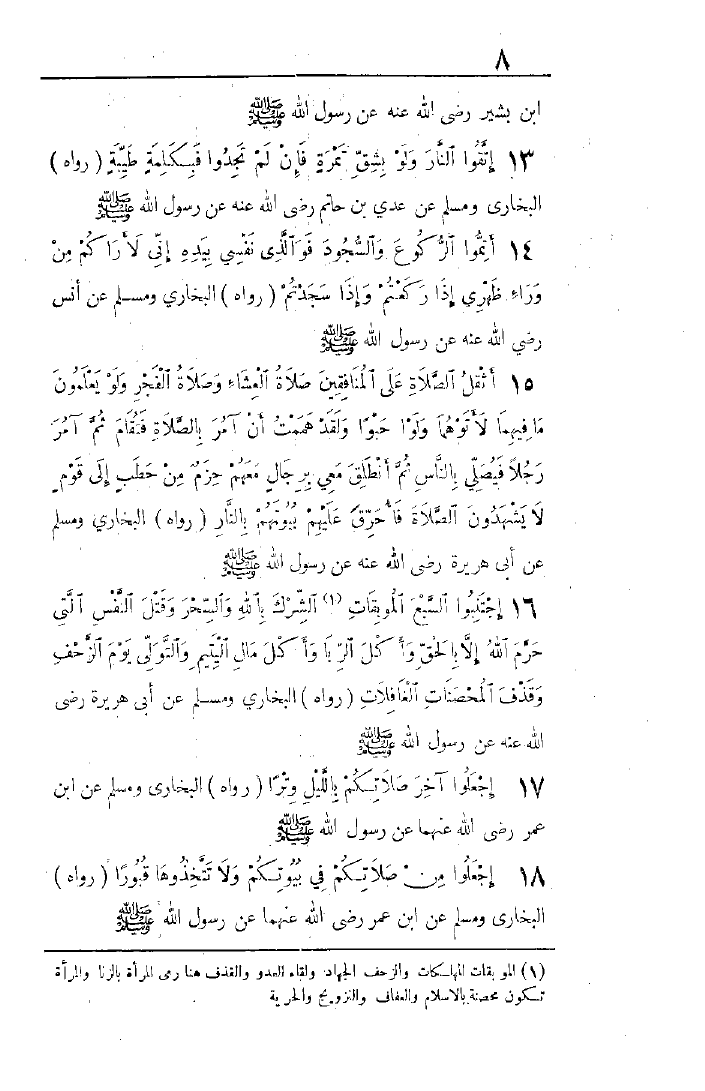 ٨
ابن بشير رضى الله عنه عن رسول الله ﷺ
١٣ إِتَّقُوا النَّارَ وَلَوْ بِشِقِّ تَمْرَةٍ فَإِنْ لَمْ تَجِدُوا فَبِكَلِمَةٍ طَيِّبَةٍ ( رواه )
البخارى ومسلم عن عدي بن حاتم رضى الله عنه عن رسول الله ﷺ
١٤ أَتِمُّوا الرُّكُوعَ وَالسُّجُودَ فَوَالَّذِى نَفْسِي بِيَدِهِ إِنِّى لَأَرَاكُمْ مِنْ
وَرَاءِ ظَهْرِي إِذَا رَكَعْتُمْ وَإِذَا سَجَدْتُمْ ( رواه ) البخاري ومسلم عن أنس
رضي الله عنه عن رسول الله ﷺ
١٥ أَثْقَلُ الصَّلَاةِ عَلَى الْمُنَافِقِينَ صَلَاةُ الْعِشَاءِ وَصَلَاةُ الْفَجْرِ وَلَوْ يَعْلَمُونَ
مَا فِيهِمَا لَأَتَوْهُمَا وَلَوْا حَبْوًا وَلَقَدْ هَمَمْتُ أَنْ آمُرَ بِالصَّلَاةِ فَتُقَامَ ثُمَّ آمُرَ
رَجُلًا فَيُصَلِّي بِالنَّاسِ ثُمَّ أَنْطَلِقَ مَعِي بِرِجَالٍ مَعَهُمْ حِزَمٌ مِنْ حَطَبٍ إِلَى قَوْمٍ
لَا يَشْهَدُونَ الصَّلَاةَ فَأُحَرِّقَ عَلَيْهِمْ بُيُوتَهُمْ بِالنَّارِ ( رواه ) البخاري ومسلم
عن أبى هريرة رضى الله عنه عن رسول الله ﷺ
١٦ إِجْتَنِبُوا السَّبْعَ الْمُوبِقَاتِ (١) الشِّرْكَ بِاللهِ وَالسِّحْرَ وَقَتْلَ النَّفْسِ الَّتِي
حَرَّمَ اللهُ إِلَّا بِالْحَقِّ وَأَكْلَ الرِّبَا وَأَكْلَ مَالِ الْيَتِيمِ وَالتَّوَلِّى يَوْمَ الزَّحْفِ
وَقَذْفَ الْمُحْصَنَاتِ الْغَافِلَاتِ ( رواه ) البخاري ومسلم عن أبى هريرة رضى
الله عنه عن رسول الله ﷺ
١٧ إِجْعَلُوا آخِرَ صَلَاتِكُمْ بِاللَّيْلِ وِتْرًا ( رواه ) البخارى ومسلم عن ابن
عمر رضى الله عنهما عن رسول الله ﷺ
١٨ إِجْعَلُوا مِنْ صَلَاتِكُمْ فِي بُيُوتِكُمْ وَلَا تَتَّخِذُوهَا قُبُورًا ( رواه )
البخارى ومسلم عن ابن عمر رضى الله عنهما عن رسول الله ﷺ
(١) الموبقات المهلكات والزحف الجهاد ولقاء العدو والقذف هنا رمى المرأة بالزنا والمرأة
تكون محصنة بالاسلام والعفاف والتزويج والحرية